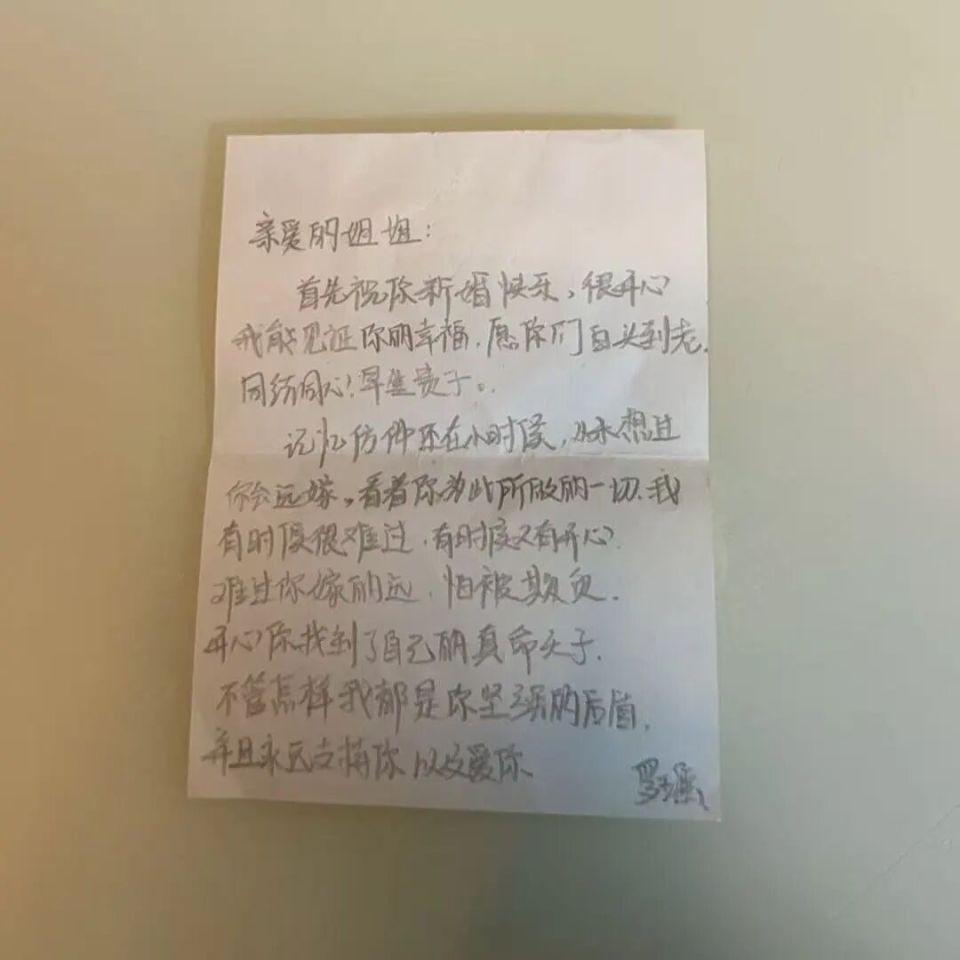 亲爱的姐姐：
首先祝你新婚快乐，很开心
我能见证你的幸福，愿你们白头到老，
同结同心！早生贵子。
记忆仿佛还在小时候，从未想过
你会远嫁，看着你为此所做的一切，我
有时候很难过，有时候又有开心
难过你嫁的远，怕被欺负。
开心你找到了自己的真命天子。
不管怎样我都是你坚强的后盾，
并且永远支持你以及爱你